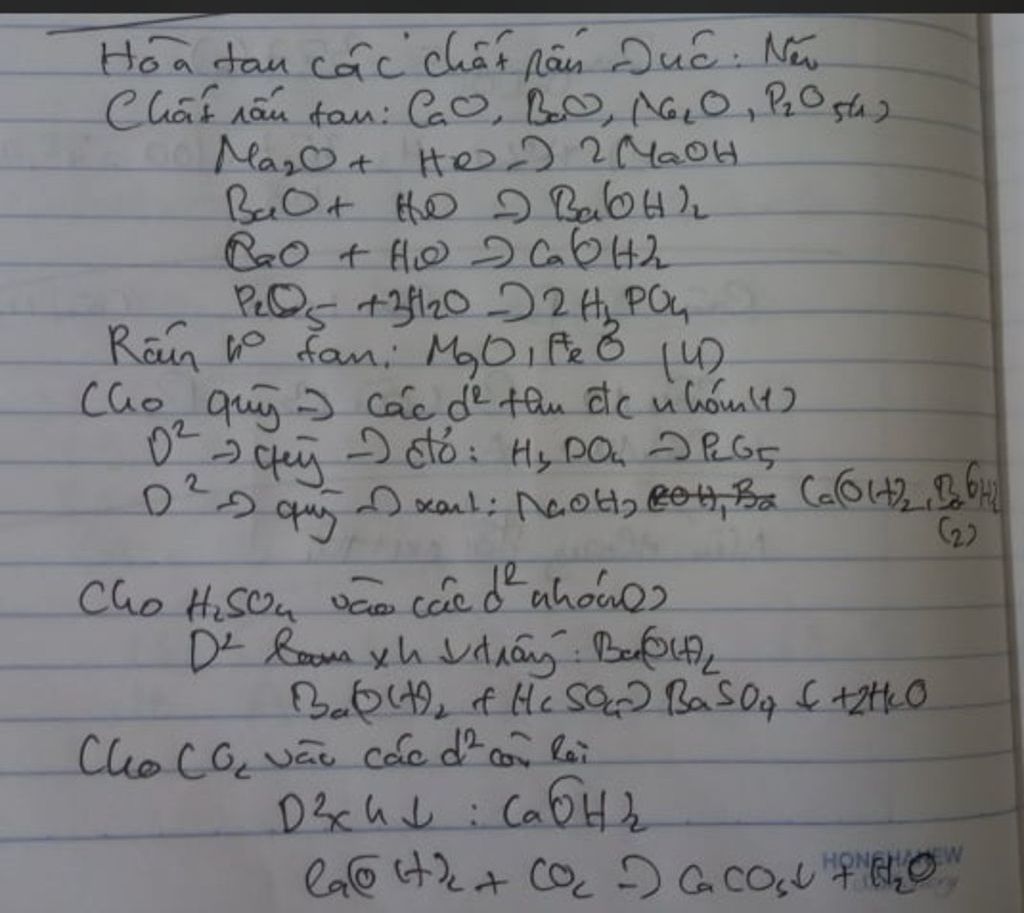 Hoà tan các chất rắn ⇒ nước: Nếu
Chất rắn tan: CaO, BaO, Na₂O, P₂O₅ (1)
Na₂O + H₂O → 2NaOH
BaO + H₂O → Ba(OH)₂
CaO + H₂O → Ca(OH)₂
P₂O₅ + 3H₂O → 2H₃PO₄
Rắn k° tan: MgO, Fe
Cho quỳ → các d² tan đc nhóm (1)
D² → quỳ → đỏ: H₃PO₄ → P₂O₅
D² → quỳ → xanh: NaOH, Ca(OH)₂, Ba(OH)₂
(2)
Cho H₂SO₄ vào các d² nhóm (2)
D² xh ↓ trắng: Ba(OH)₂
Ba(OH)₂ + H₂SO₄ → BaSO₄ ↓ + 2H₂O
Cho CO₂ vào các d² còn lại
D² xh ↓ : Ca(OH)₂
Ca(OH)₂ + CO₂ → CaCO₃↓ + H₂O